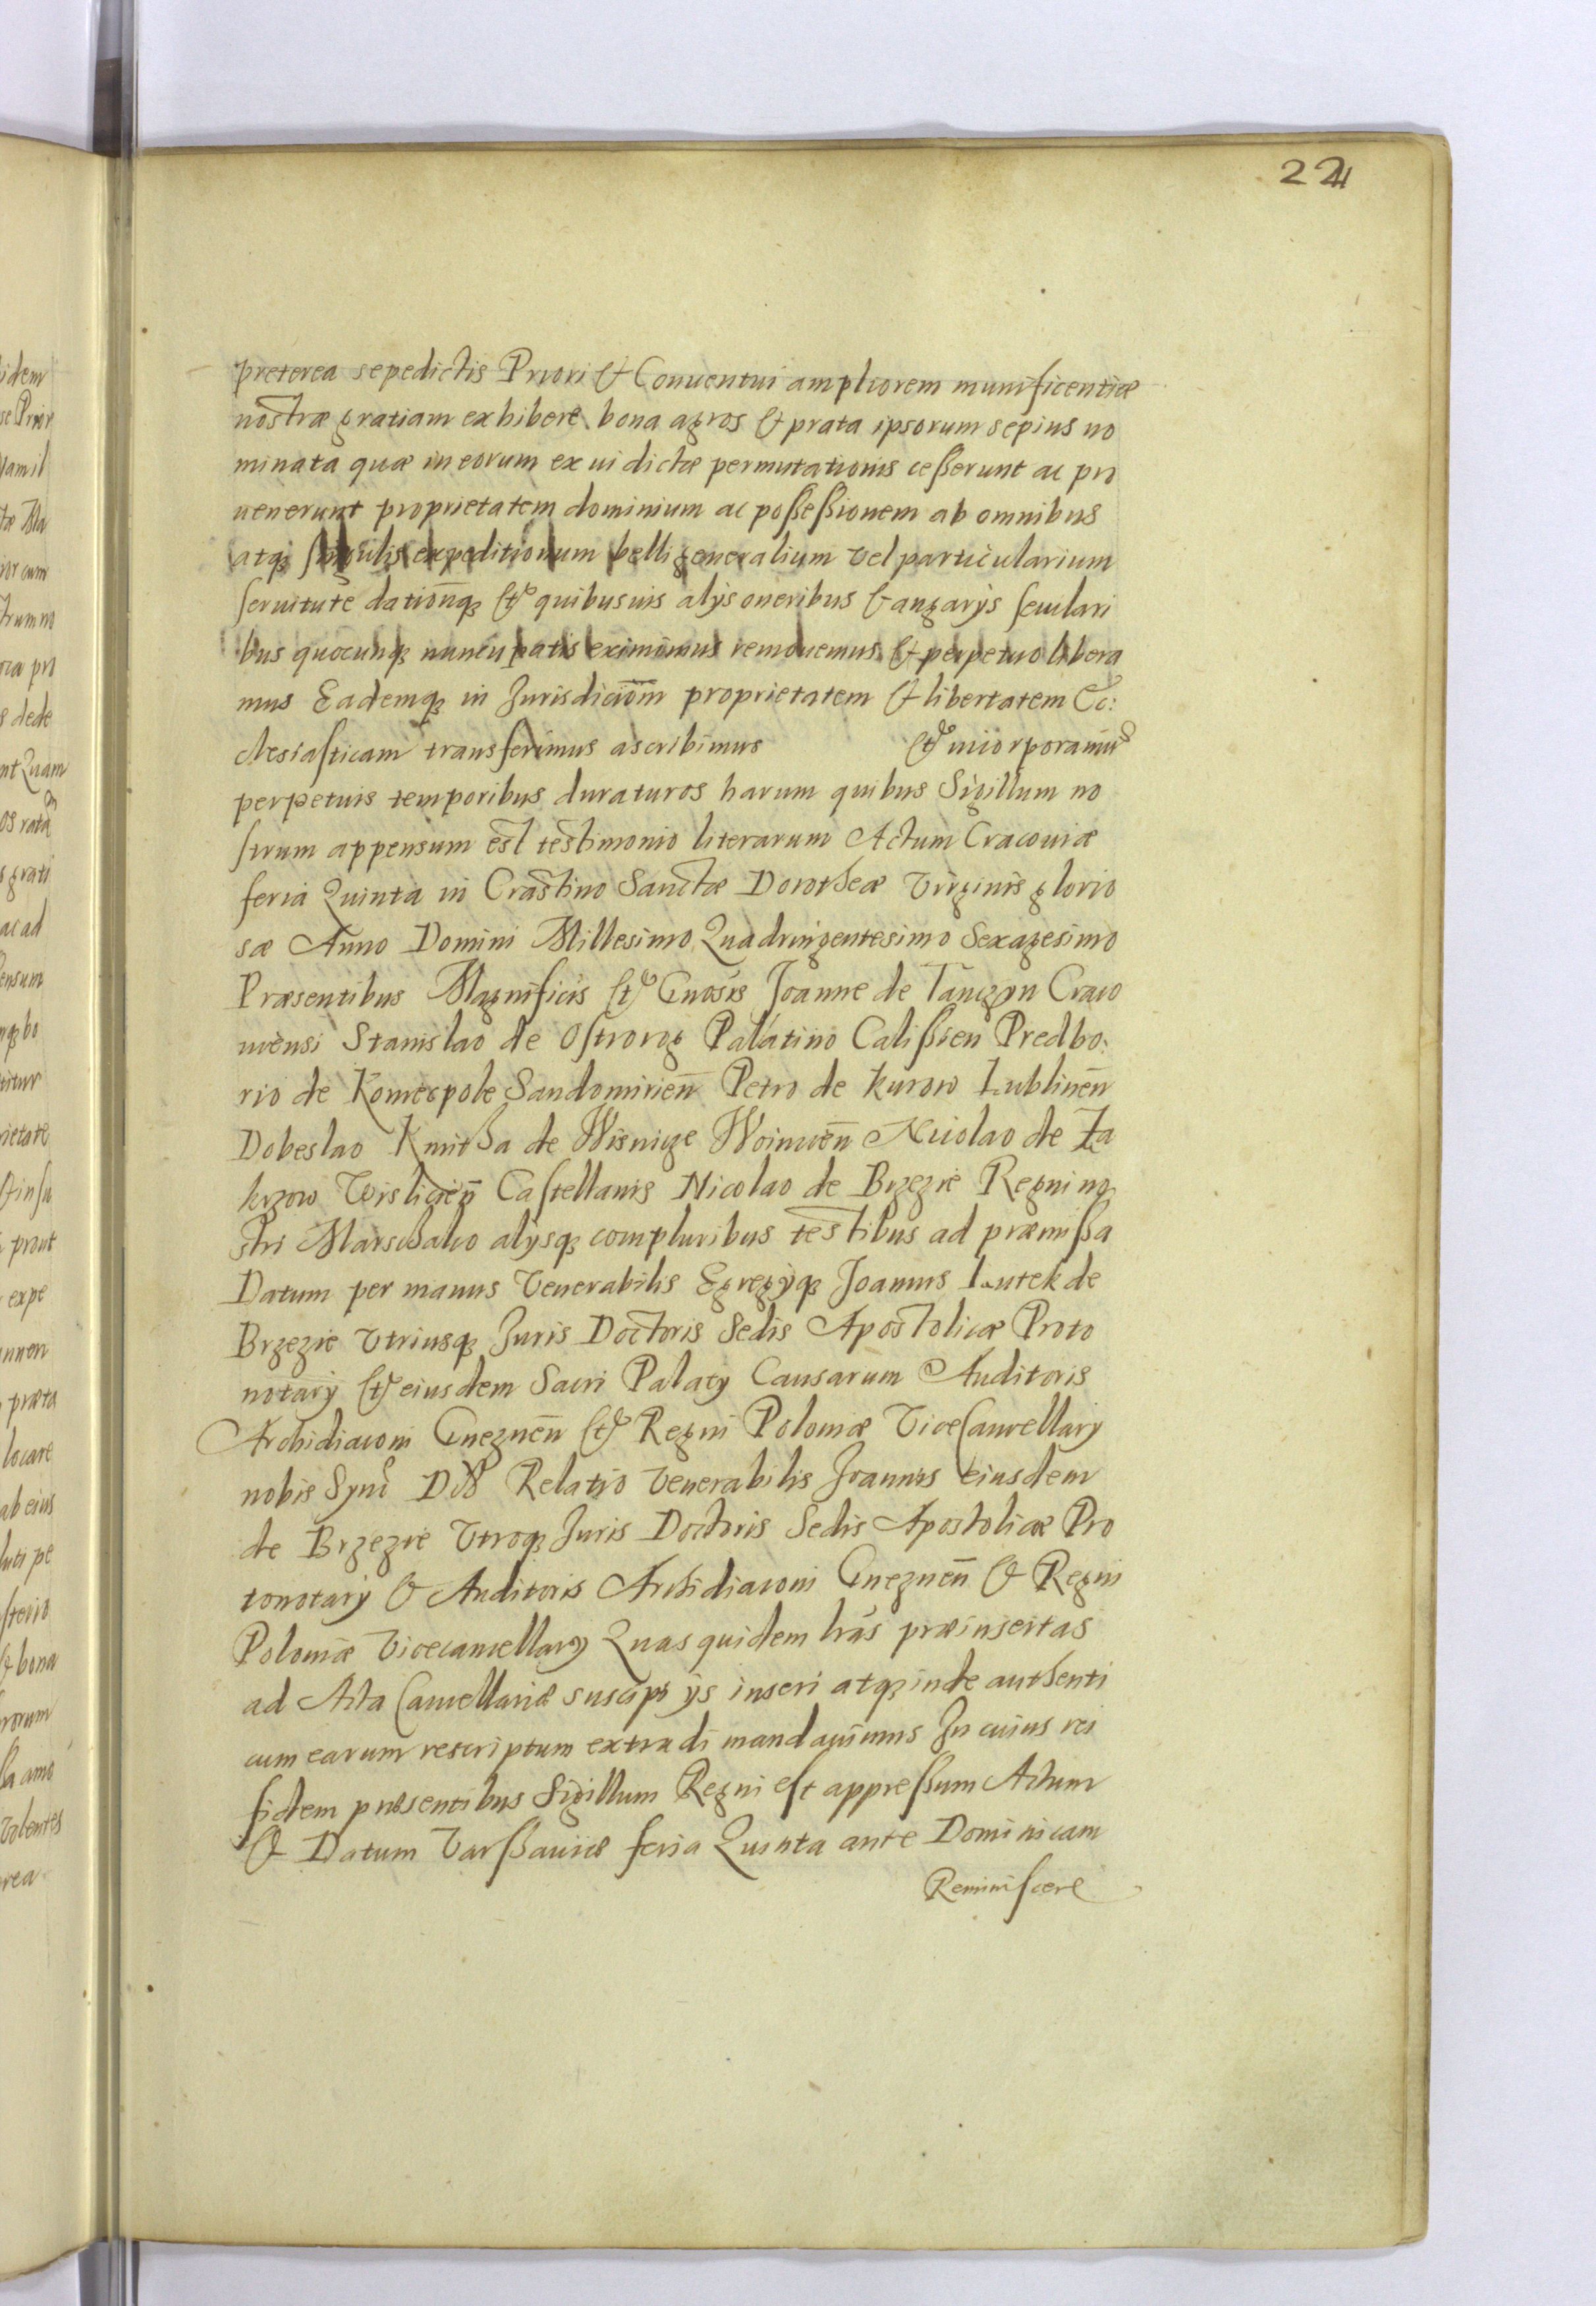 224
preterea sepedictis Priori & Conuentui ampliorem munificentiæ
nostræ gratiam exhibere bona agros & prata ipsorum sepius no
minata quæ in eorum ex ui dictæ permutationis ceßerunt ac pro
uenerunt proprietatem dominium ac poßeßionem ab omnibus
atq3 singulis expeditionum belli generalium vel particularium
seruitute dationūq3 & quibusuis alijs oneribus & angarijs seculari
bus quocunq3 nuncupatis eximimus remouemus & perpetuo libera
mus Eademq3 in Jurisdicionm̄ proprietatem & libertatem Ec:
clesiasticam transferimus ascribimus & incorporamus
perpetuis temporibus duraturos harum quibus Sigillum no
strum appensum est testimonio literarum Actum Cracouiæ
feria Quinta in Crastino Sanctæ Dorotheæ Virginis glorio
sæ Anno Domini Millesimo Quadringentesimo Sexagesimo
Præsentibus Magnificis & Gnosis Joanne de Tanczyn Craco
uiensi Stanislao de Ostrorog Palatino Calißien Predbo:
rio de Koniecpole Sandomirien̄ Petro de Kurow Lublinen̄
Dobeslao Kmitha de Wisnicze Woinicen̄ Nicolao de Za
krzow Wislicien̄ Castellanis Nicolao de Brzezie Regni no
stri Marschalco alijsq3 compluribus testibus ad præmißa
Datum per manus Venerabilis Egregijq3 Joannis Lutek de
Brzezie Vtriusq3 Juris Doctoris Sedis Apostolicæ Proto
notarij & eiusdem Sacri Palacij Causarum Auditoris
Archidiaconi Gneznen̄ & Regni Poloniæ ViceCancellarij
nobis Relatio Venerabilis Joannis eiusdem
de Brzezie Vtroq3 Juris Doctoris Sedis Apostolicæ Pro
tonotarij & Auditoris Archidiaconi Gneznen̄ & Regni
Poloniæ Vicecancellarij Quas quidem lrās præinsertas
ad Acta Cancellariæ suscipi ijs inseri atq3 inde authenti
cum earum rescriptum extradi mandauimus In cuius rei
fidem præsentibus Sigillum Regni est appreßum Actum
& Datum Varßauiæ feria Quinta ante Dominicam
Reminiscere